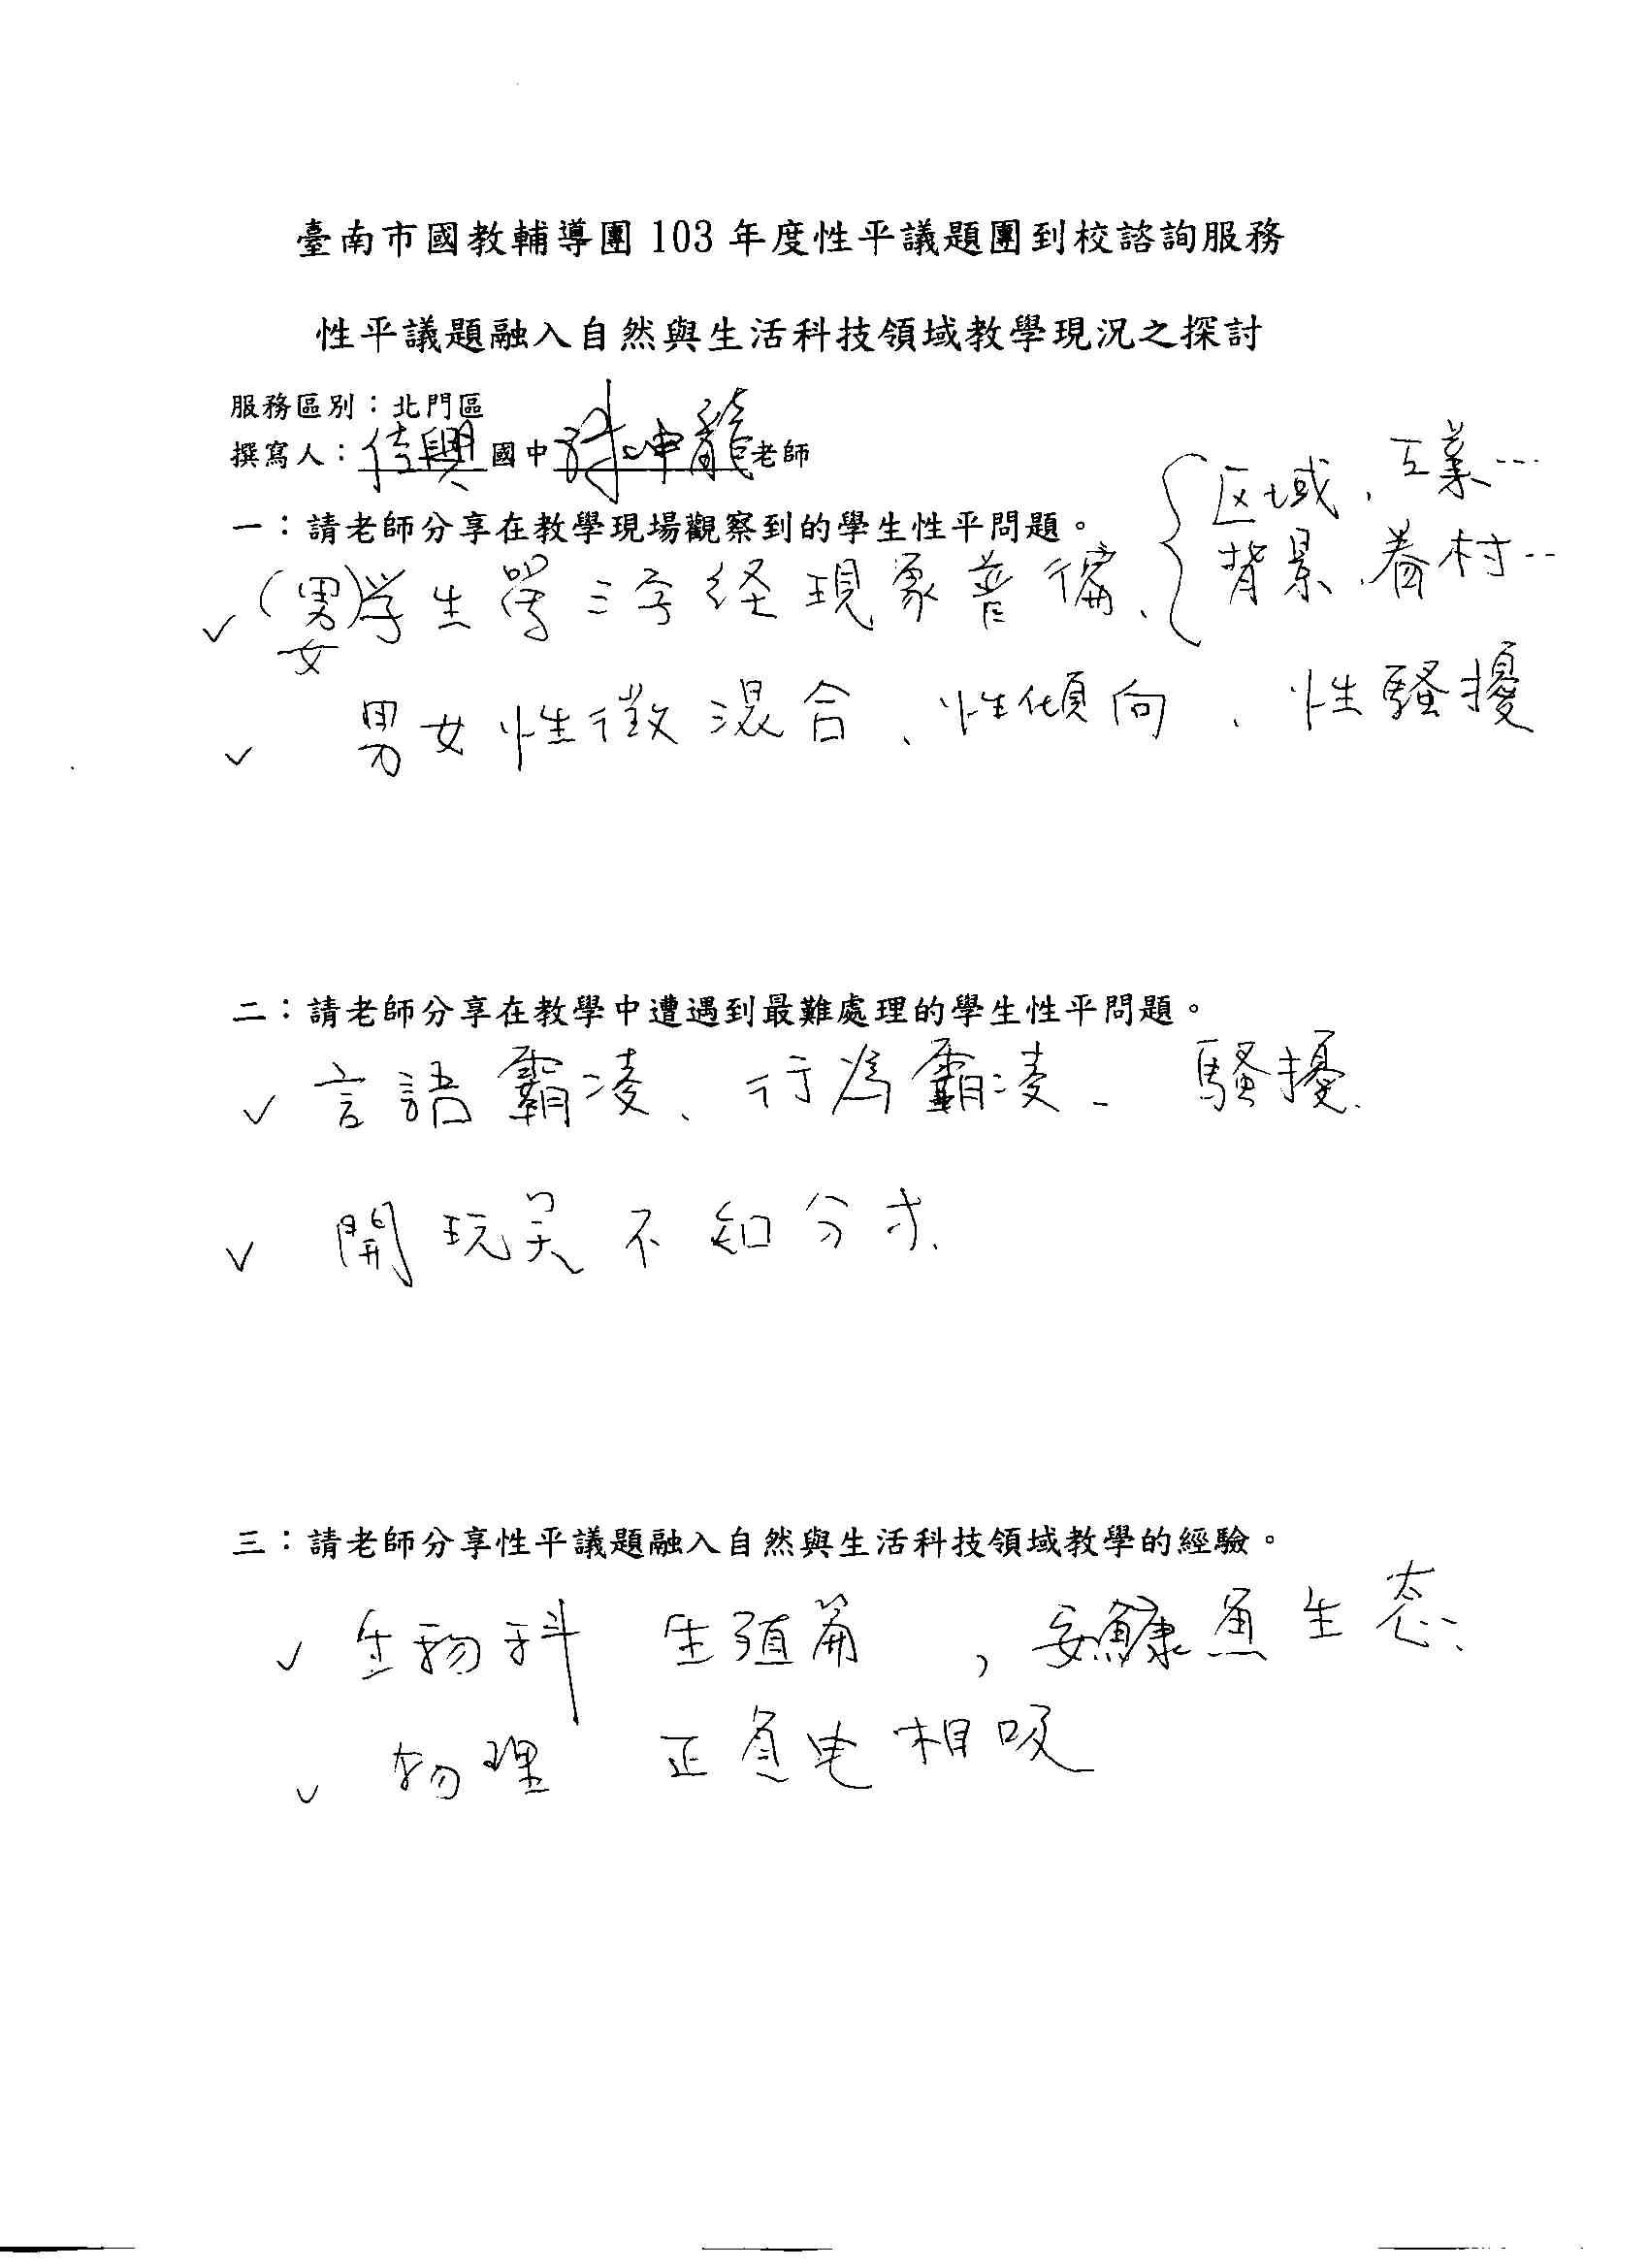 臺南市國教輔導團 103 年度性平議題團到校諮詢服務
性平議題融入自然與生活科技領域教學現況之探討
服務區別：北門區
撰寫人：佳興國中 坤龍老師
一：請老師分享在教學現場觀察到的學生性平問題。
区域、工業…
背景、眷村…
✓ (男女)学生罵三字経現象普徧、
✓ 男女性徵混合、性傾向、性騷擾
二：請老師分享在教學中遭遇到最難處理的學生性平問題。
✓ 言語霸凌、行為霸凌、騷擾、
✓ 開玩笑不知分寸、
三：請老師分享性平議題融入自然與生活科技領域教學的經驗。
✓ 生物科 生殖篇，鮟鱇魚生态、
✓ 物理 正負电相吸